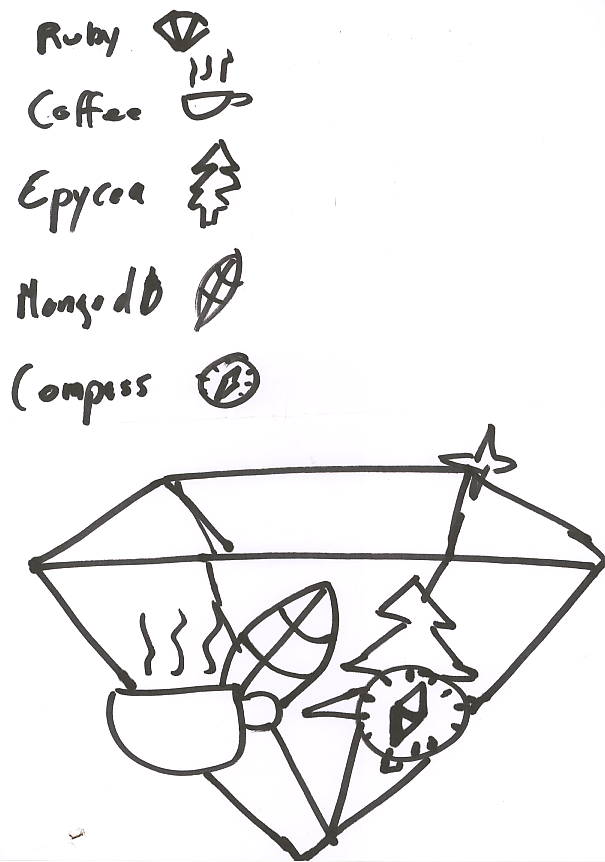 Ruby
Coffee
Epycea
MongodB
Compass